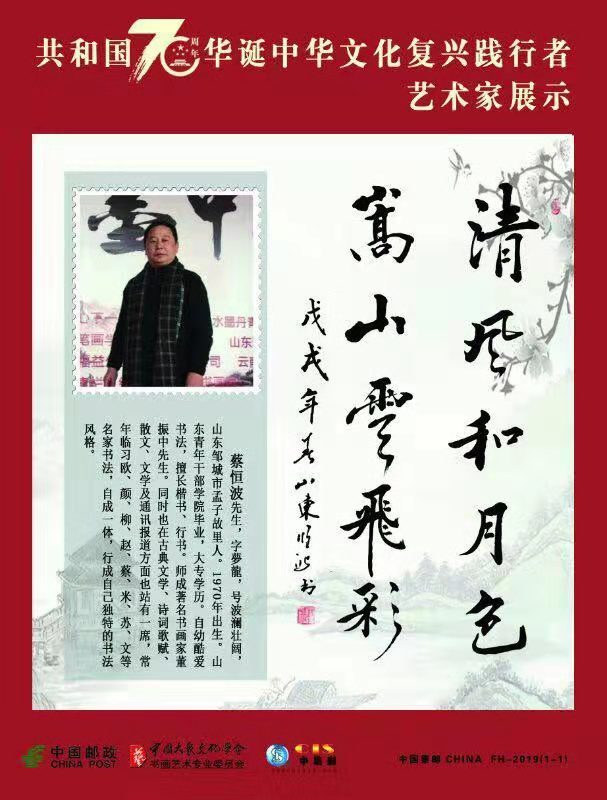 共和国70周年华诞中华文化复兴践行者
艺术家展示
清风和月色
嵩山雲飛彩
戊戌年春山東恒波书
水墨丹青
山东
司 云南
蔡恒波先生，字夢龍，号波澜壮阔，
山东邹城市孟子故里人。1970年出生。山
东青年干部学院毕业，大专学历。自幼酷爱
书法，擅长楷书、行书。师成著名书画家董
振中先生。同时也在古典文学、诗词歌赋、
散文、文学及通讯报道方面也站有一席，常
年临习欧、颜、柳、赵、蔡、米、苏、文等
名家书法，自成一体，行成自己独特的书法
风格。
中国邮政
CHINA POST
中国大众文化学会
书画艺术专业委员会
CIS
中国邮 CHINA FH-2019(1-1)